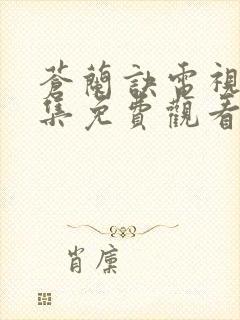 蒼蘭訣電視
集免費觀看
肖廩